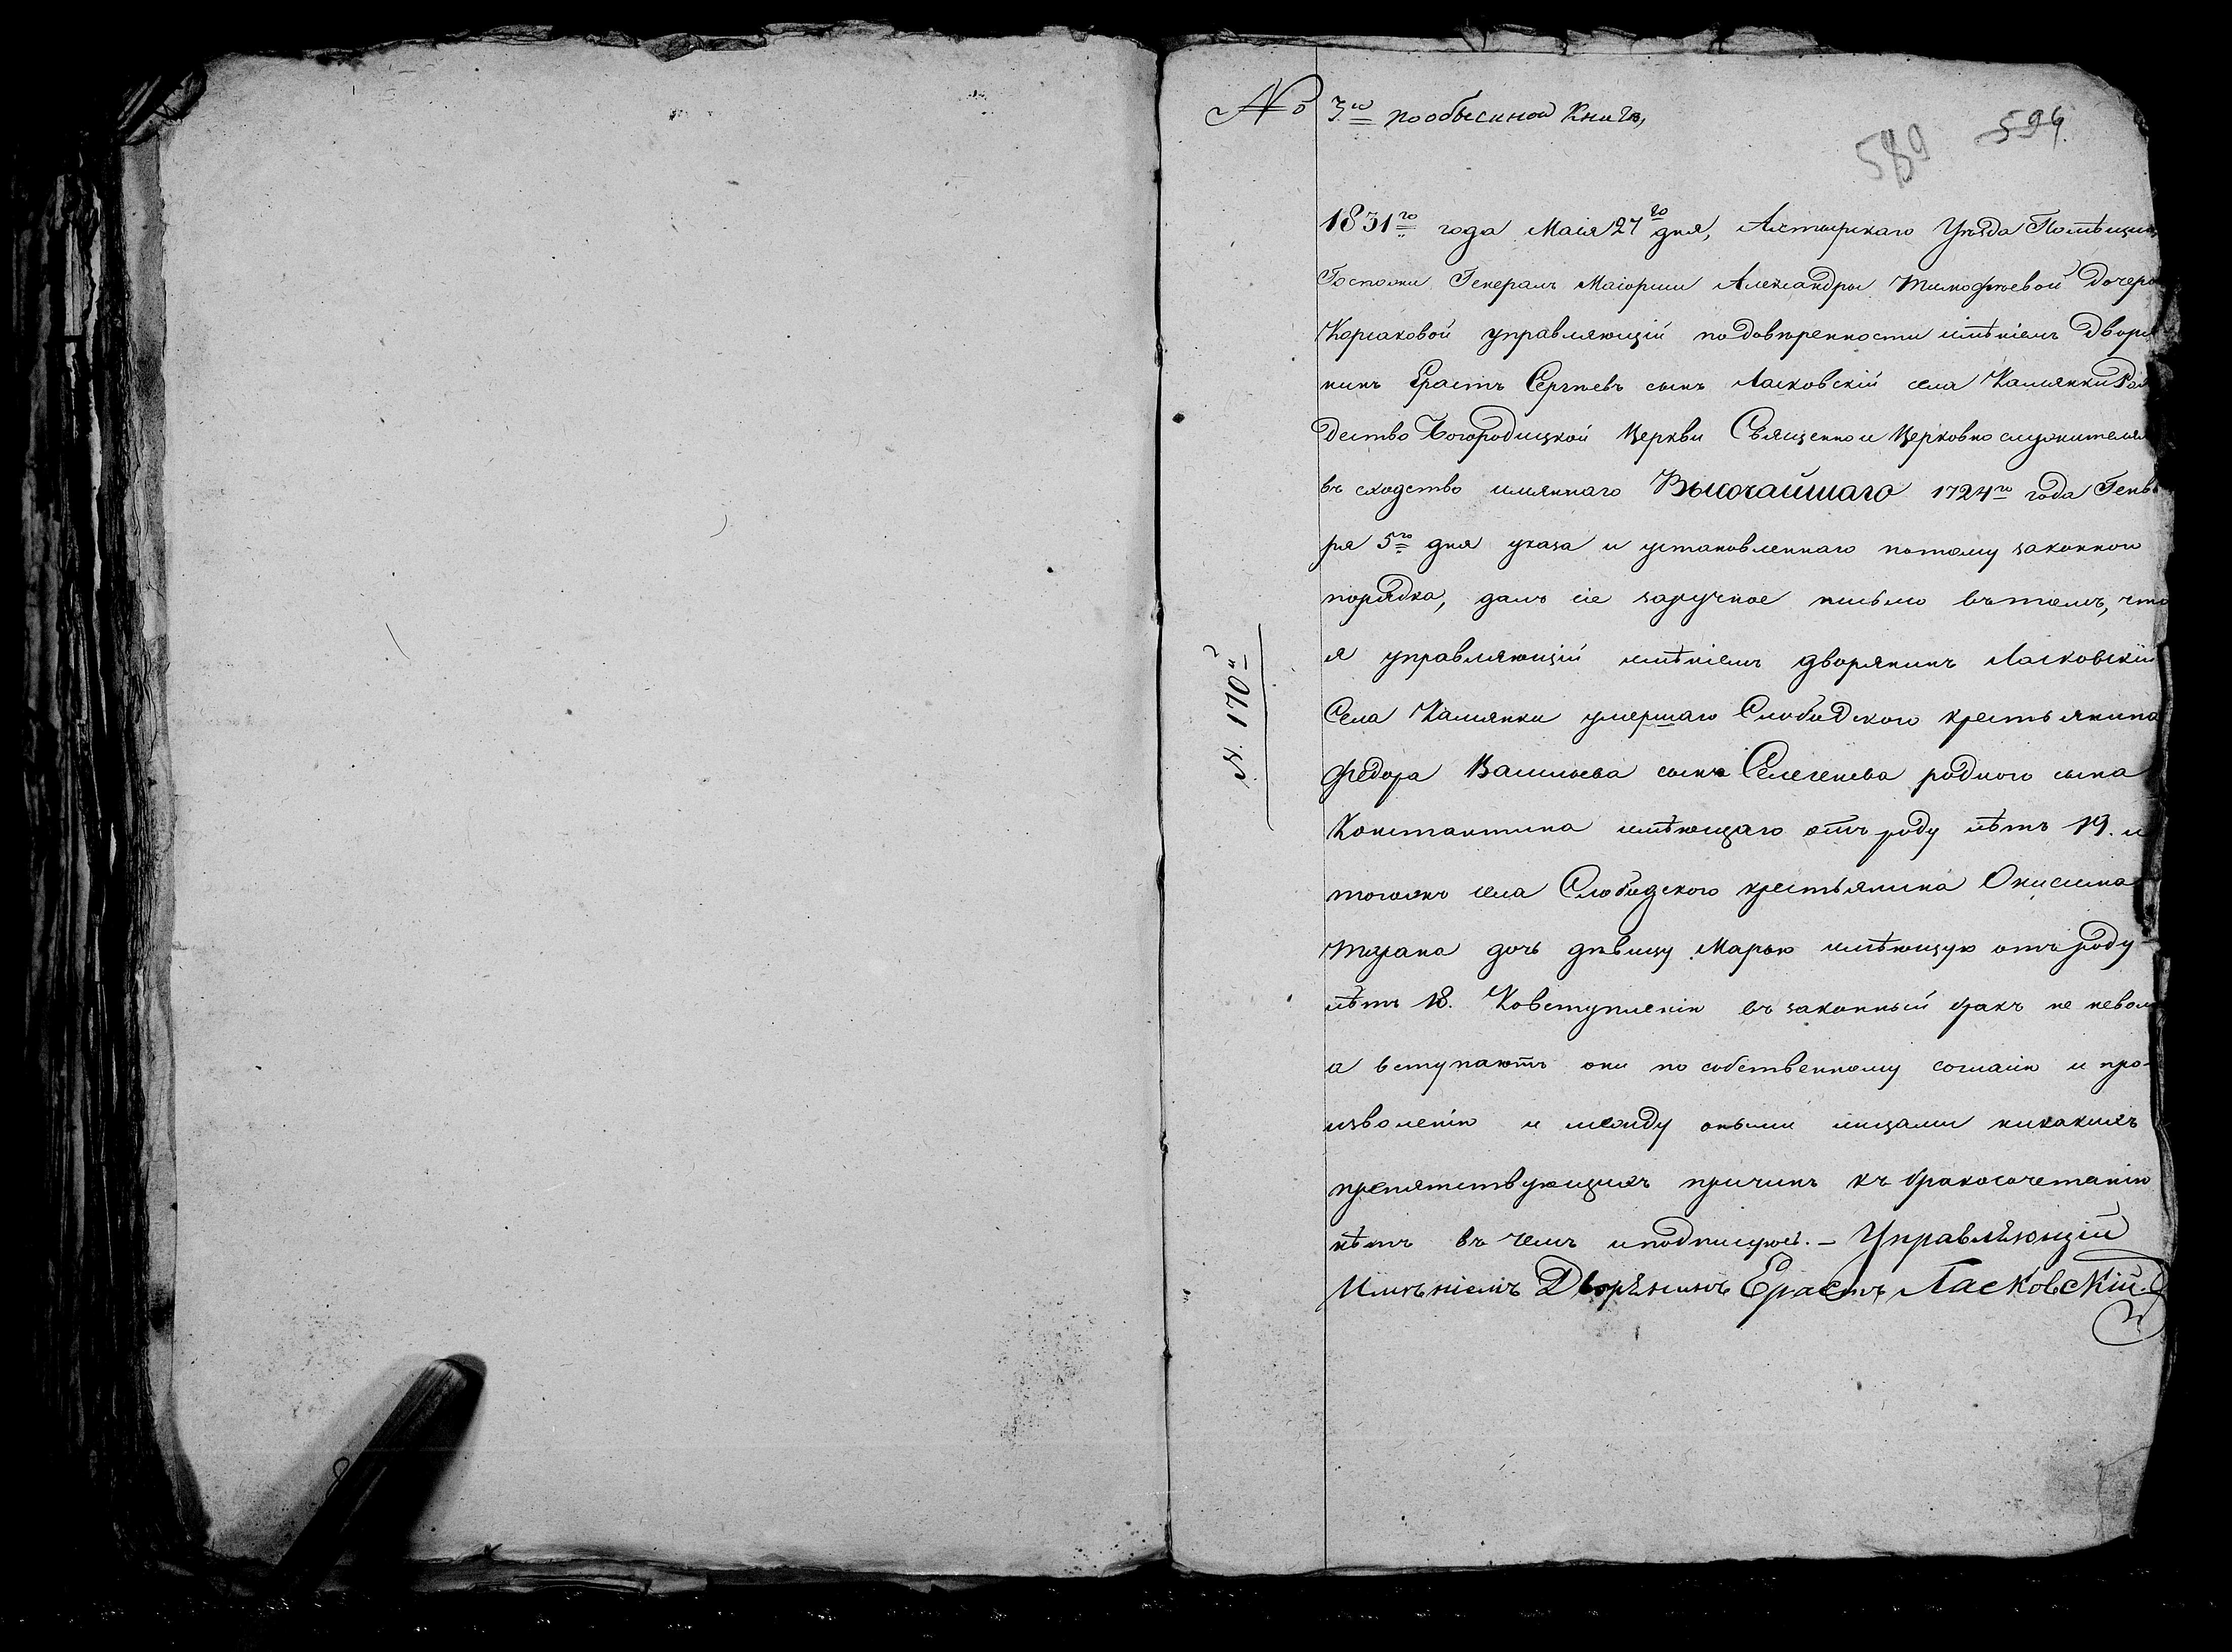 № 3го пообыскной Книгѣ,
589 594.
1831го года Маія 27го дня, Ахтырскаго Уѣзда Помѣщицы
Госпожи Генералъ Маіорши Александры Тимофѣевой дочери
Корсаковой управляющій подовѣренности имѣніемъ Дворя
нинъ Ерастъ Сергѣевъ сынъ Ласковскій села Камянки Рож
дество Богородицкой Церкви Священно и Церковно служителямъ
въ сходство имяннаго Высочайшаго 1724го года Генва
ря 5го дня указа и установленнаго потому законного
порядка, далъ сіе заручное письмо втомъ, что
я управляющій имѣніемъ дворянинъ Ласковскій
Села Камянки умершаго Слободского крестьянина
Федора Васильева сына родного сына
Константина имѣющаго отъ роду лѣтъ 19. и
тогожъ села Слободского крестьянина Онисима
дочь дѣвицу Марью имѣющую отъ роду
лѣтъ 18. Ковступленію въ законный бракъ не неволю
а вступаютъ они по собственному согласію и про-
изволенію и между оными лицами никакихъ
препятствующихъ причинъ къ бракосочетанію
нѣтъ въ чемъ иподписуюсь. – Управляющій
Имѣніемъ Дворянинъ Ерастъ Ласковскій
№. 170й